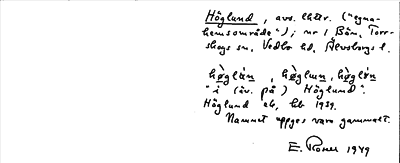 Höglund, avs. lhtr. ("egna-
hemsområde"); nr 1 Bån, Torr-
skogs sn, Vedbo hd, Älvsborgs l.
hö̀glún, hö̀glun, hö̀glún
"i (äv. på) Höglund".
Höglund ek. kb 1939.
Namnet uppges vara gammalt.
E. Rosell 1949